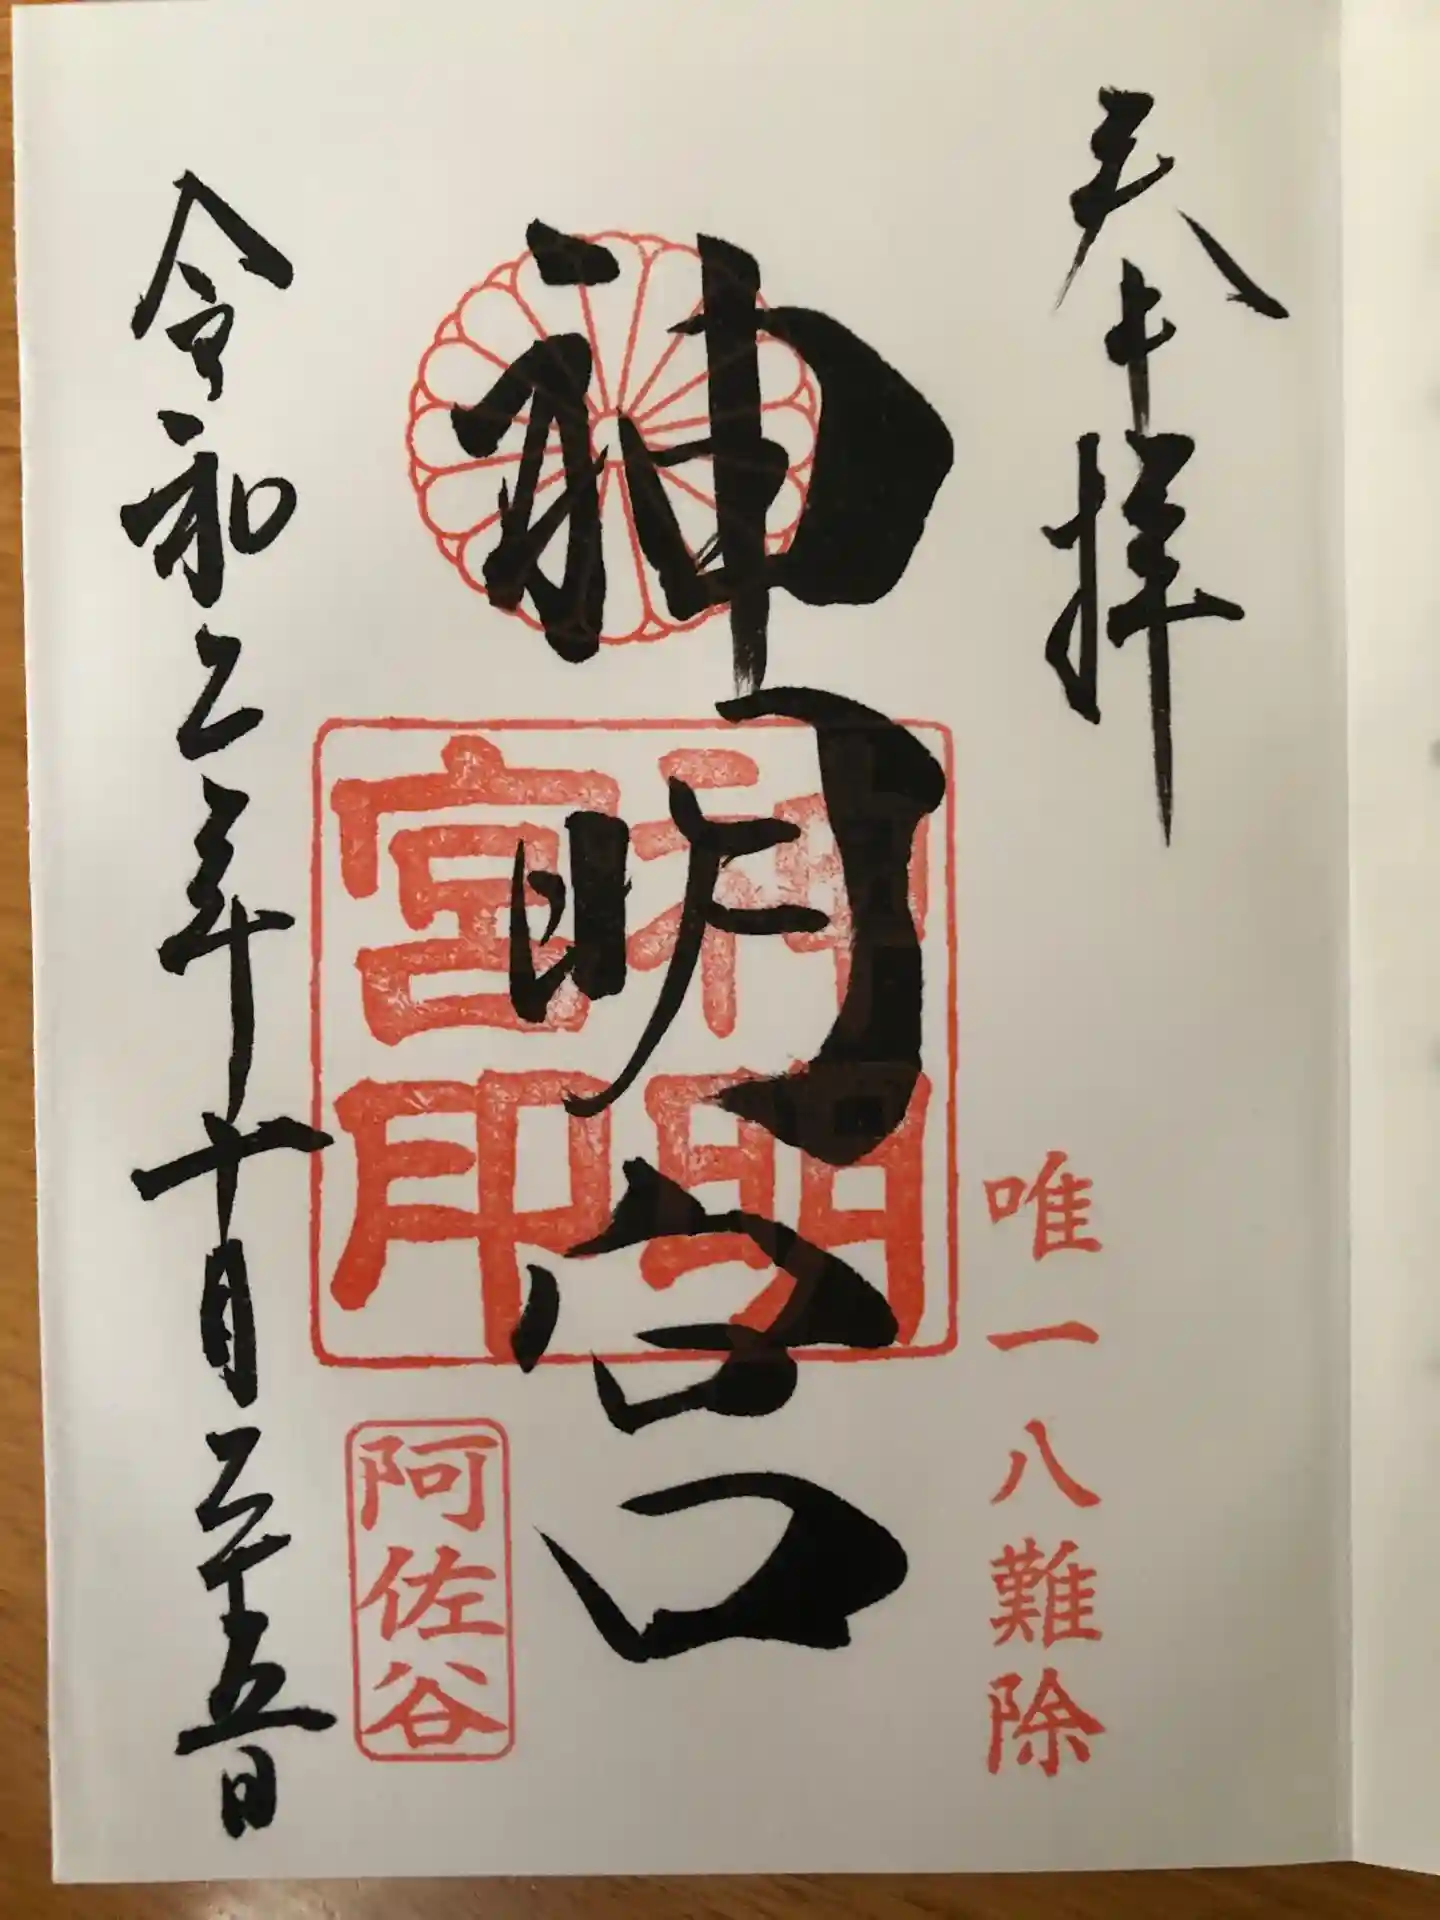 奉拝
唯一八難除
神明宮
神明宮印
阿佐谷
令和二年十月二十五日